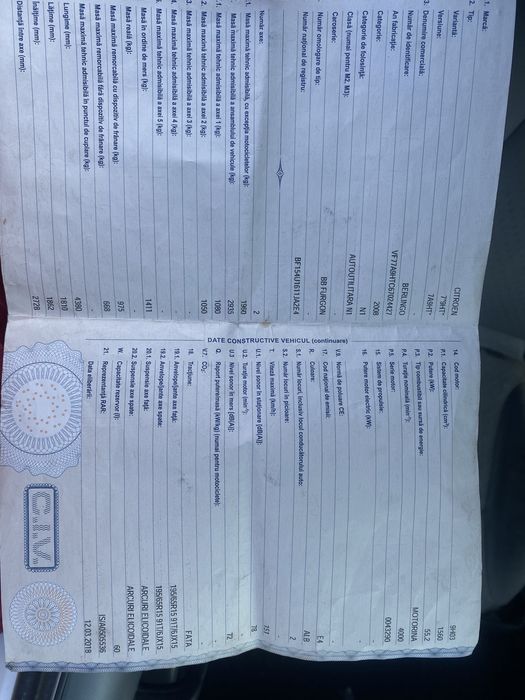 1. Marcă: CITROEN
2. Tip: 7*9HT*
Variantă:
Versiune: 7A9HT*
3. Denumire comercială: BERLINGO
Număr de identificare: VF77A9HTC67024427
An fabricaţie: 2008
Categorie: N1
Categorie de folosinţă: AUTOUTILITARA N1
Clasă (numai pentru M2, M3):
Caroserie: BB FURGON
Număr omologare de tip:
Număr naţional de registru: BF154U1611JA2E4
Număr axe: 2
Masă maximă tehnic admisibilă, cu excepţia motocicletelor (kg): 1960
Masă maximă tehnic admisibilă a ansamblului de vehicule (kg): 2935
Masă maximă tehnic admisibilă a axei 1 (kg): 1080
Masă maximă tehnic admisibilă a axei 2 (kg): 1050
Masă maximă tehnic admisibilă a axei 3 (kg):
Masă maximă tehnic admisibilă a axei 4 (kg):
Masă maximă tehnic admisibilă a axei 5 (kg):
Masă în ordine de mers (kg): 1411
Masă reală (kg):
Masă maximă remorcabilă cu dispozitiv de frânare (kg): 975
Masă maximă remorcabilă fără dispozitiv de frânare (kg): 668
Masă maximă tehnic admisibilă în punctul de cuplare (kg):
Lungime (mm): 4380
Lăţime (mm): 1810
Înălţime (mm): 1862
Distanţă între axe (mm): 2728
DATE CONSTRUCTIVE VEHICUL (continuare)
14. Cod motor: 9H03
P.1. Capacitate cilindrică (cm³): 1560
P.2. Putere (kW): 55.2
P.3. Tip combustibil sau sursă de energie: MOTORINA
P.4. Turaţie nominală (min⁻¹): 4000
P.5. Serie motor: 0043290
15. Sistem de propulsie:
16. Putere motor electric (kW):
V.9. Normă de poluare CE: E4
17. Cod naţional de emisii:
R. Culoare: ALB
S.1. Număr locuri, inclusiv locul conducătorului auto: 2
S.2. Număr locuri în picioare:
T. Viteză maximă (km/h): 151
U.1. Nivel sonor în staţionare [dB(A)]: 78
U.2. Turaţie motor (min⁻¹):
U.3. Nivel sonor în mers [dB(A)]: 72
Q. Raport putere/masă (kW/kg) (numai pentru motociclete):
V.7. CO₂:
18. Tracţiune: FATA
19.1. Anvelope/jante axa faţă: 195/65R15 91T/6JX15
19.2. Anvelope/jante axe spate: 195/65R15 91T/6JX15
20.1. Suspensie axa faţă: ARCURI ELICOIDALE
20.2. Suspensie axe spate: ARCURI ELICOIDALE
W. Capacitate rezervor (l): 60
21. Reprezentanţă RAR: IS/A0505536
Data eliberării: 12.03.2018
C.I.V.